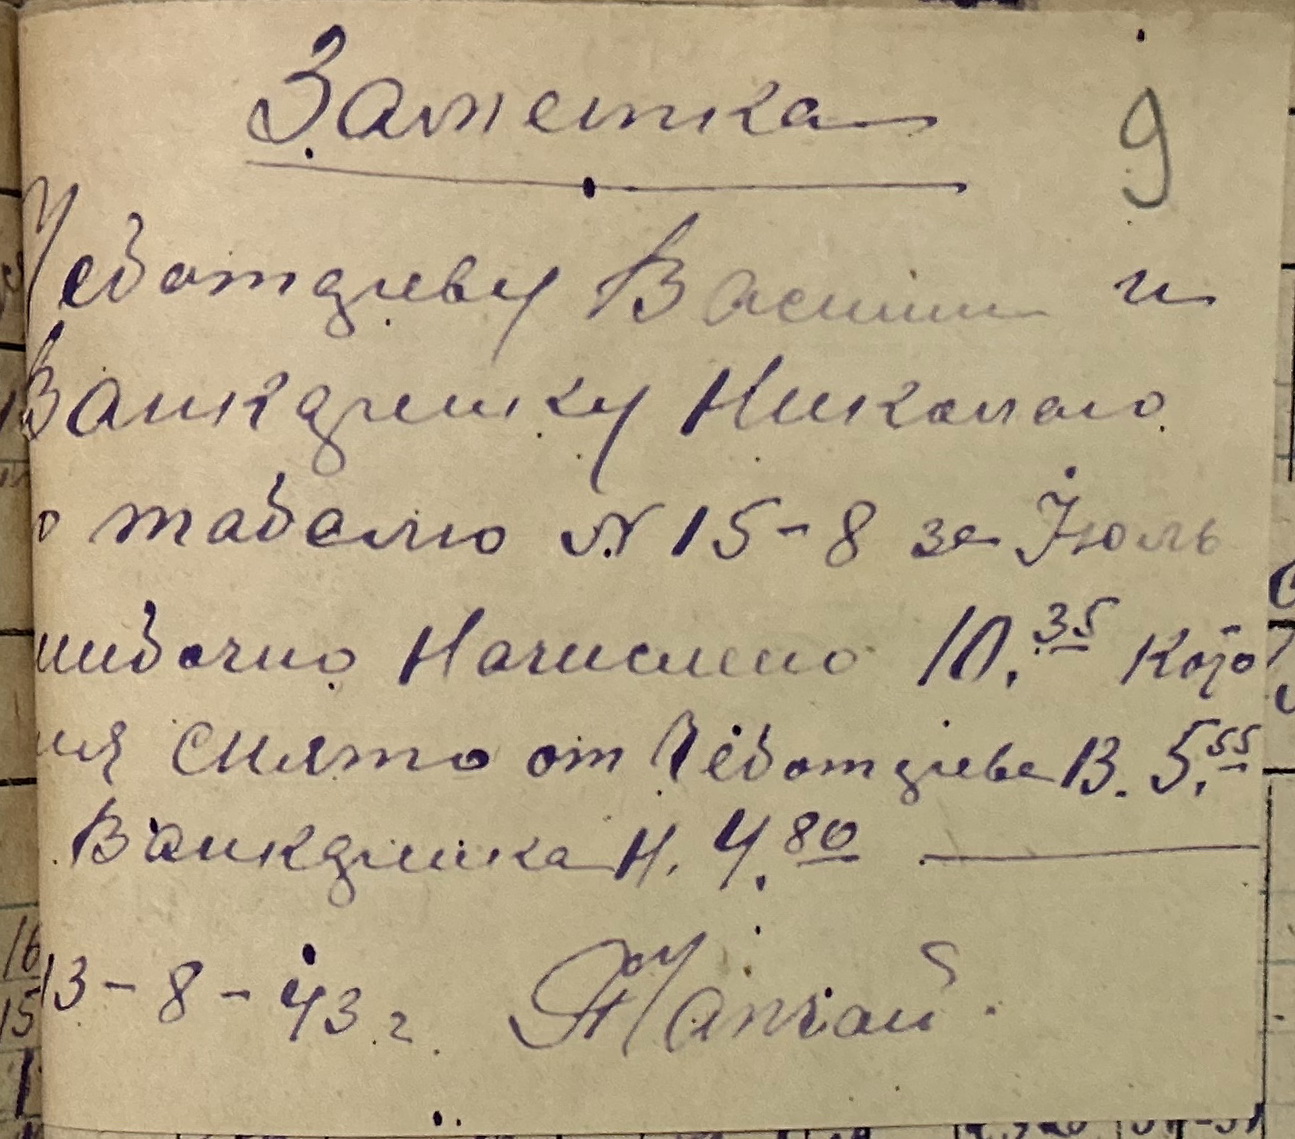 Заметка 9
Чеботдреву Васили и
Ванкдрешку Николаю
о табелю N 15-8 за Июль
шибочно Начислено 10.35 Кото
ия Снято от Чеботдрева В. 5.55
Ванкдрешка Н. 4.80
13-8-43 г.